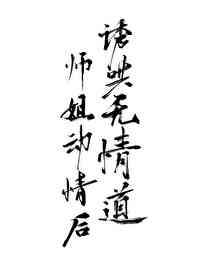 诱哄无情道
师姐动情后